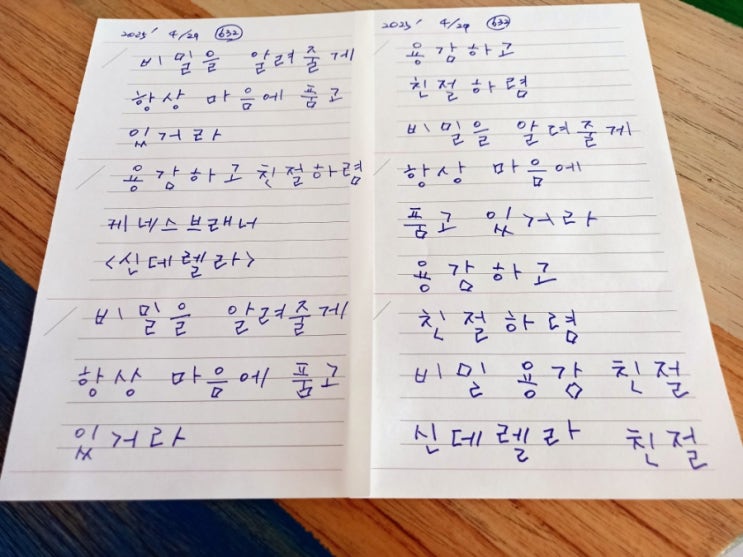 2025' 4/29 632
비밀을 알려줄게
항상 마음에 품고
있거라
용감하고 친절하렴
케네스브래너
<신데렐라>
비밀을 알려줄게
항상 마음에 품고
있거라
2025' 4/29 632
용감하고
친절하렴
비밀을 알려줄게
항상 마음에
품고 있거라
용감하고
친절하렴
비밀 용감 친절
신데렐라 친절